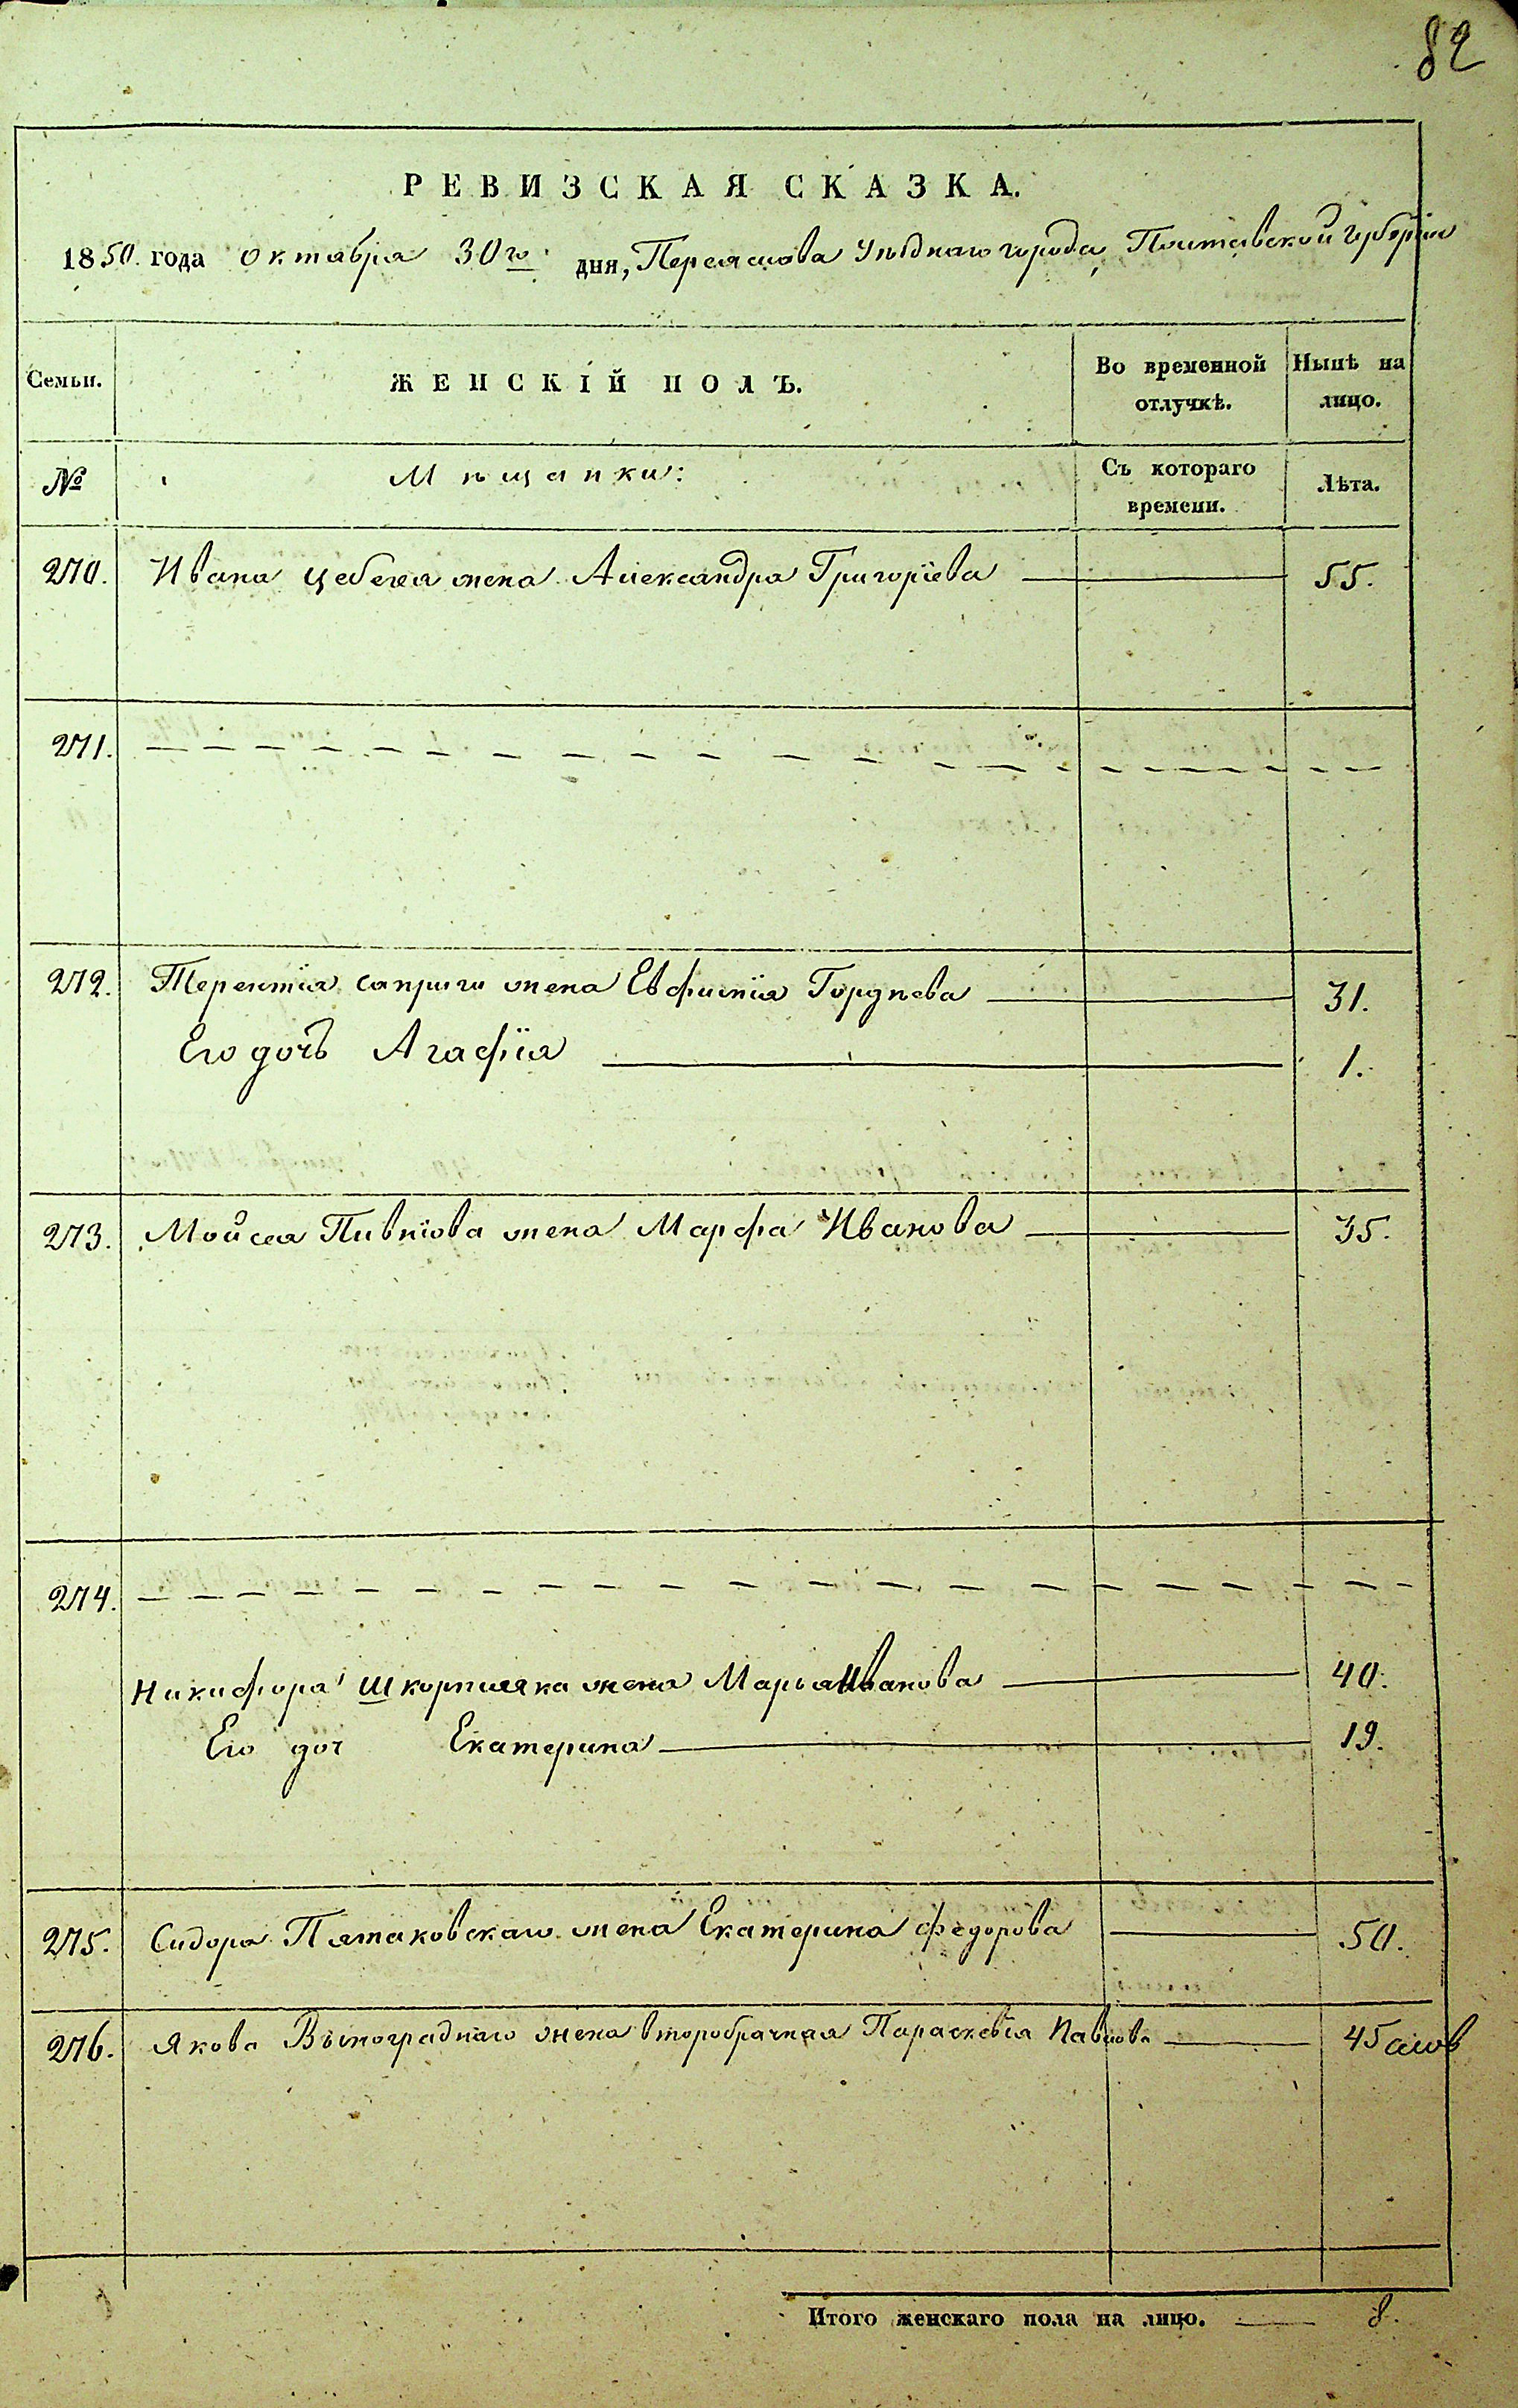 82
РЕВИЗСКАЯ СКАЗКА.
1850. года октября 30го дня, Переяслова Уѣзднаго города, Полтавской Губерніи
Семьи. ЖЕНСКІЙ ПОЛЪ. Во временной отлучкѣ. Нынѣ на лицо.
№ Мѣщанки: Съ котораго времени. Лѣта.
270. Ивана Цебела жена Александра Григоріева 55.
271.
272. Терентія Саприги жена Евфимія Гордѣева 31.
Его дочь Агафія 1.
273. Мойсея Пивнюва жена Марфа Иванова 35.
274.
Никифора Шкорпиляка жена Марья Иванова 40.
Его доч Екатерина 19.
275. Сидора Пятаковскаго жена Екатерина Федорова 50.
276. Якова Вынограднаго жена второбрачная Параскевія Павлова 45
Итого женскаго пола на лицо. 8.